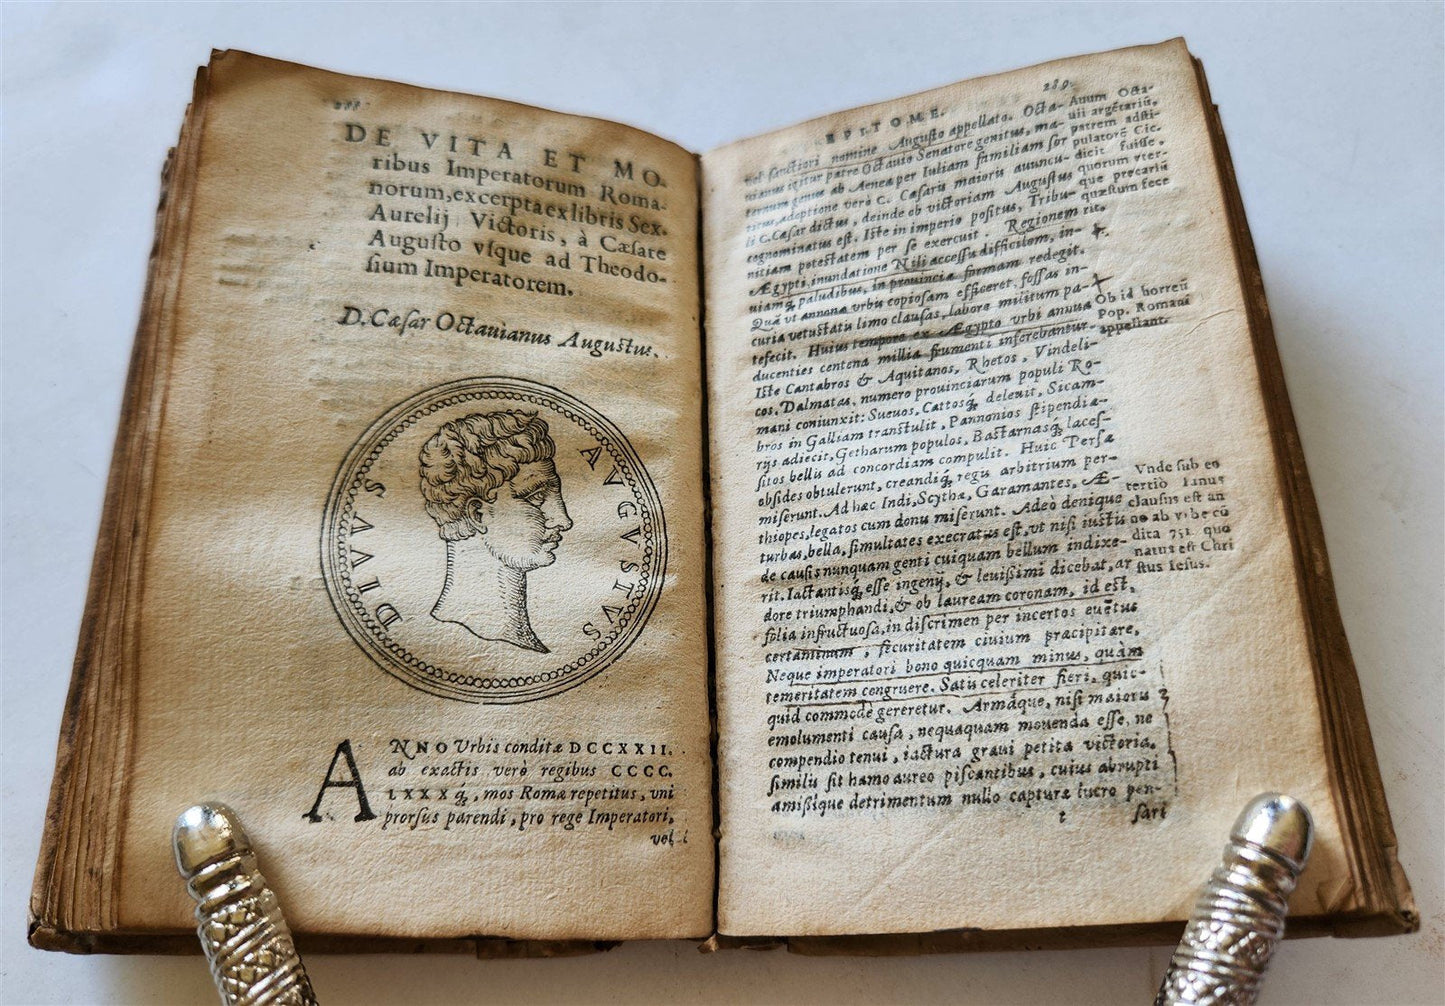 288
DE VITA ET MO-
ribus Imperatorum Roma-
norum, excerpta ex libris Sex.
Aurelij Victoris, à Cæsare
Augusto vsque ad Theodo-
sium Imperatorem.
D. Cæsar Octauianus Augustus.
DIVVS AVGVSTVS
ANNO Vrbis conditæ DCCXXII.
ab exactis verò regibus CCCC.
LXXXq́, mos Romæ repetitus, vni
prorsus parendi, pro rege Imperatori,
vel
EPITOME. 289
vel sanctiori nomine Augusto appellato. Octa-
uianus igitur patre Octauio Senatore genitus, ma-
ternum genus ab Aenea per Iuliam familiam sor-
titus, adoptione verò C. Cæsaris maioris auuncu-
li C. Cæsar dictus, deinde ob victoriam Augustus
cognominatus est. Iste in imperio positus, Tribu-
nitiam potestatem per se exercuit. Regionem
Ægypti, inundatione Nili accessu difficilem, in-
uiamq́ paludibus, in prouinciæ formam redegit.
Quã vt annonæ vrbis copiosam efficeret, fossas in-
curia vetustatis limo clausas, labore militum pa-
tefecit. Huius tempore ex Ægypto vrbi annua
ducenties centena millia frumenti inferebantur.
Iste Cantabros & Aquitanos, Rhetos, Vindeli-
cos, Dalmatas, numero prouinciarum populi Ro-
mani coniunxit: Sueuos, Cattosq́ deleuit, Sicam-
bros in Galliam transtulit, Pannonios stipendia-
rijs adiecit, Getharum populos, Bastarnasq́ laces-
sitos bellis ad concordiam compulit. Huic Persæ
obsides obtulerunt, creandiq́ regis arbitrium per-
miserunt. Ad hæc Indi, Scythæ, Garamantes, Æ-
thiopes, legatos cum donis miserunt. Adeò denique
turbas, bella, simultates execratus est, vt nisi iustis
de causis nunquam genti cuiquam bellum indixe-
rit. Iactantisq́ esse ingenij, & leuissimi dicebat, ar
dore triumphandi, & ob lauream coronam, id est,
folia infructuosa, in discrimen per incertos euẽtus
certaminum, securitatem ciuium præcipitare.
Neque imperatori bono quicquam minus, quàm
temeritatem congruere. Satis celeriter fieri, quic-
quid commodè gereretur. Armáque, nisi maioris
emolumenti causa, nequaquam mouenda esse, ne
compendio tenui, iactura graui petita victoria,
similis sit hamo aureo piscantibus, cuius abrupti
amissique detrimentum nullo capturæ lucro pen-
t sari
Auum Octa-
uii argẽtariũ,
patrem adsti-
pulatorẽ Cic.
dicit fuisse.
quorum vter-
que precariũ
quæstum fece
rit.
Ob id horreũ
Pop. Romani
appellant.
Vnde sub eo
tertiò Ianus
clausus est an
no ab vrbe cõ
dita 751. quo
natus est Chri
stus Iesus.